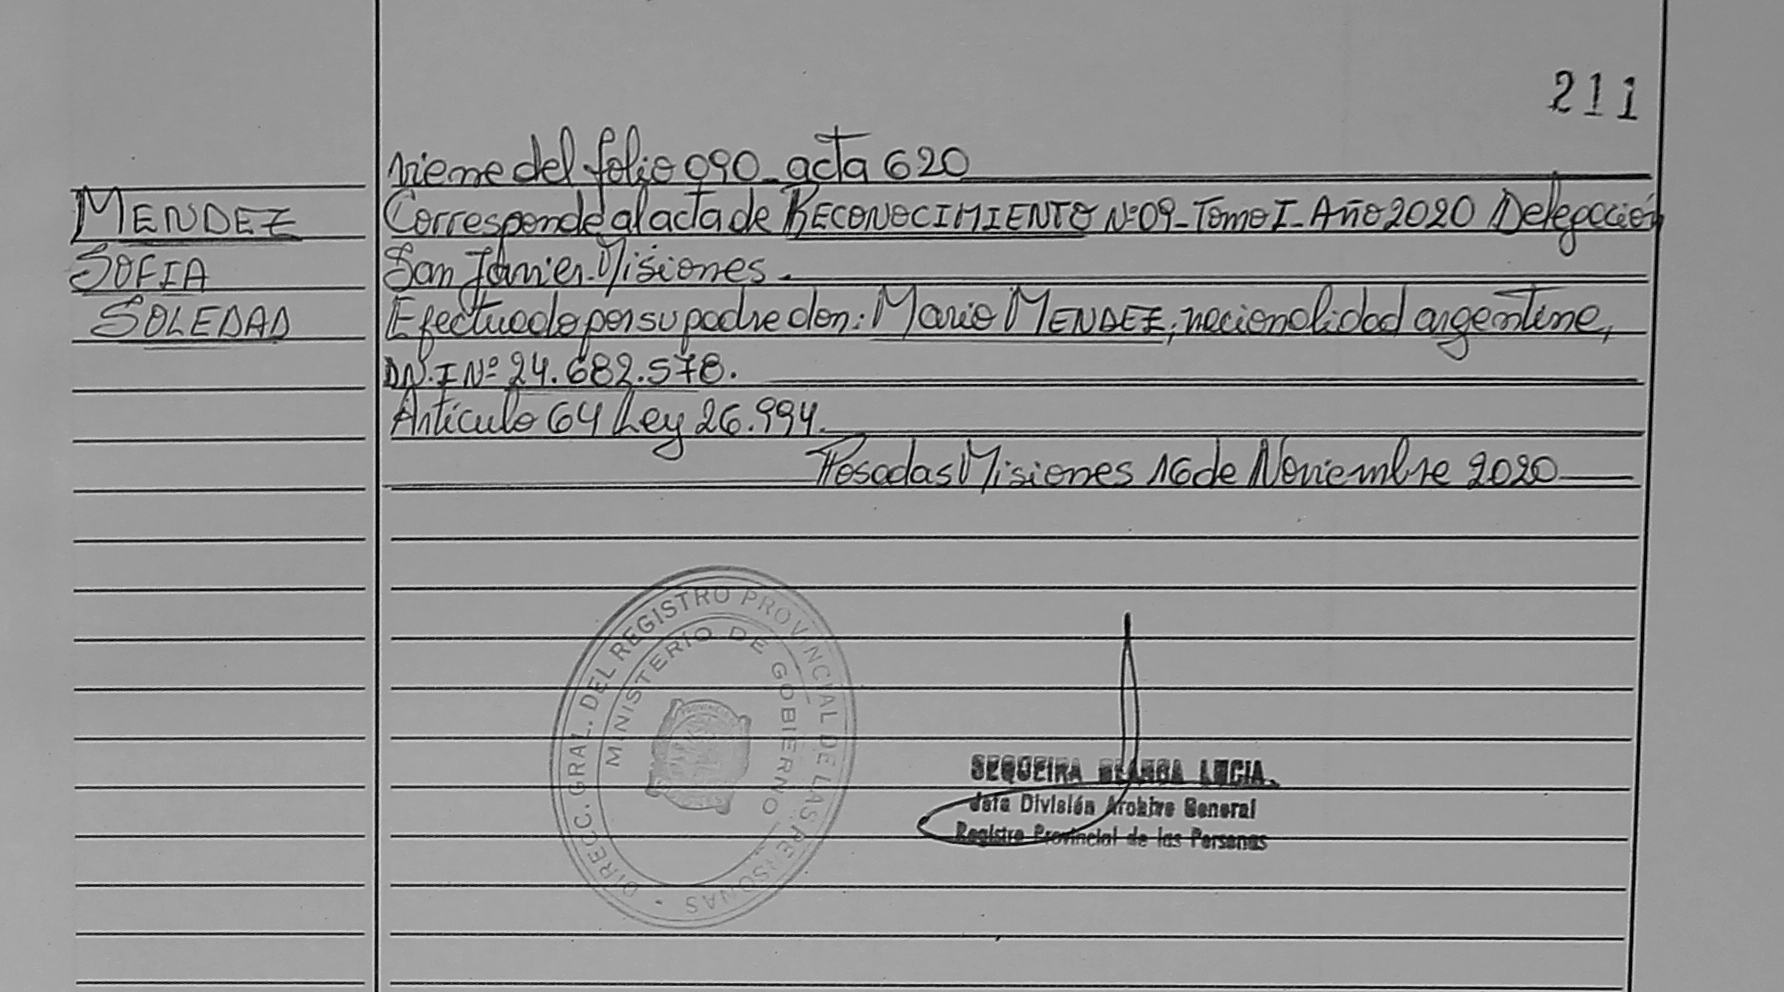 211
viene del folio 090 - acta 620
MENDEZ
SOFIA
SOLEDAD
Corresponde al acta de RECONOCIMIENTO Nº 09 - Tomo I - Año 2020 Delegación
San Javier - Misiones -
Efectuado por su padre don: Mario MENDEZ, nacionalidad argentina,
DN.I Nº 24.682.578.
Artículo 64 Ley 26.994.
Posadas Misiones 16 de Noviembre 2020
DIRECC. GRAL. DEL REGISTRO PROVINCIAL DE LAS PERSONAS
MINISTERIO DE GOBIERNO
SEQUEIRA BLANCA LUCIA
Jefa División Archivo General
Registro Provincial de las Personas